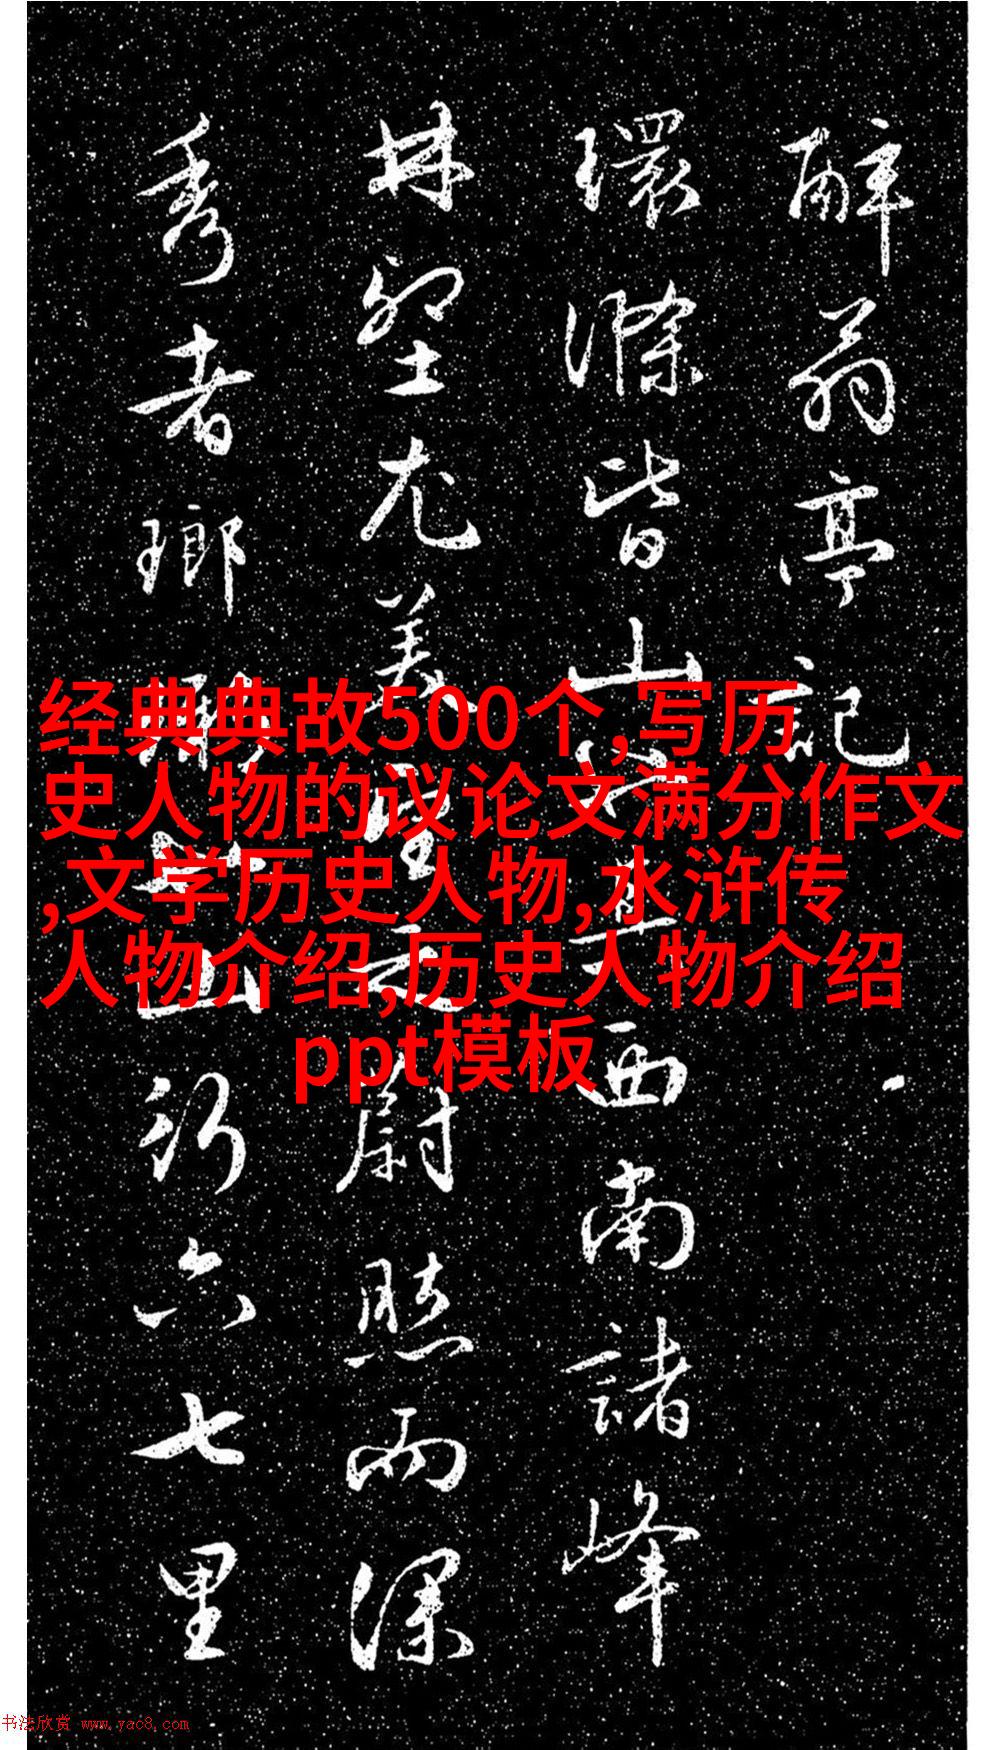 醉翁亭記
環滁皆山也其西南諸峰
林壑尤美望之蔚然而深
秀者瑯琊也山行六七里
经典典故500个,写历
史人物的议论文满分作文
,文学历史人物,水浒传
人物介绍,历史人物介绍
ppt模板
书法欣赏 www.yac8.com